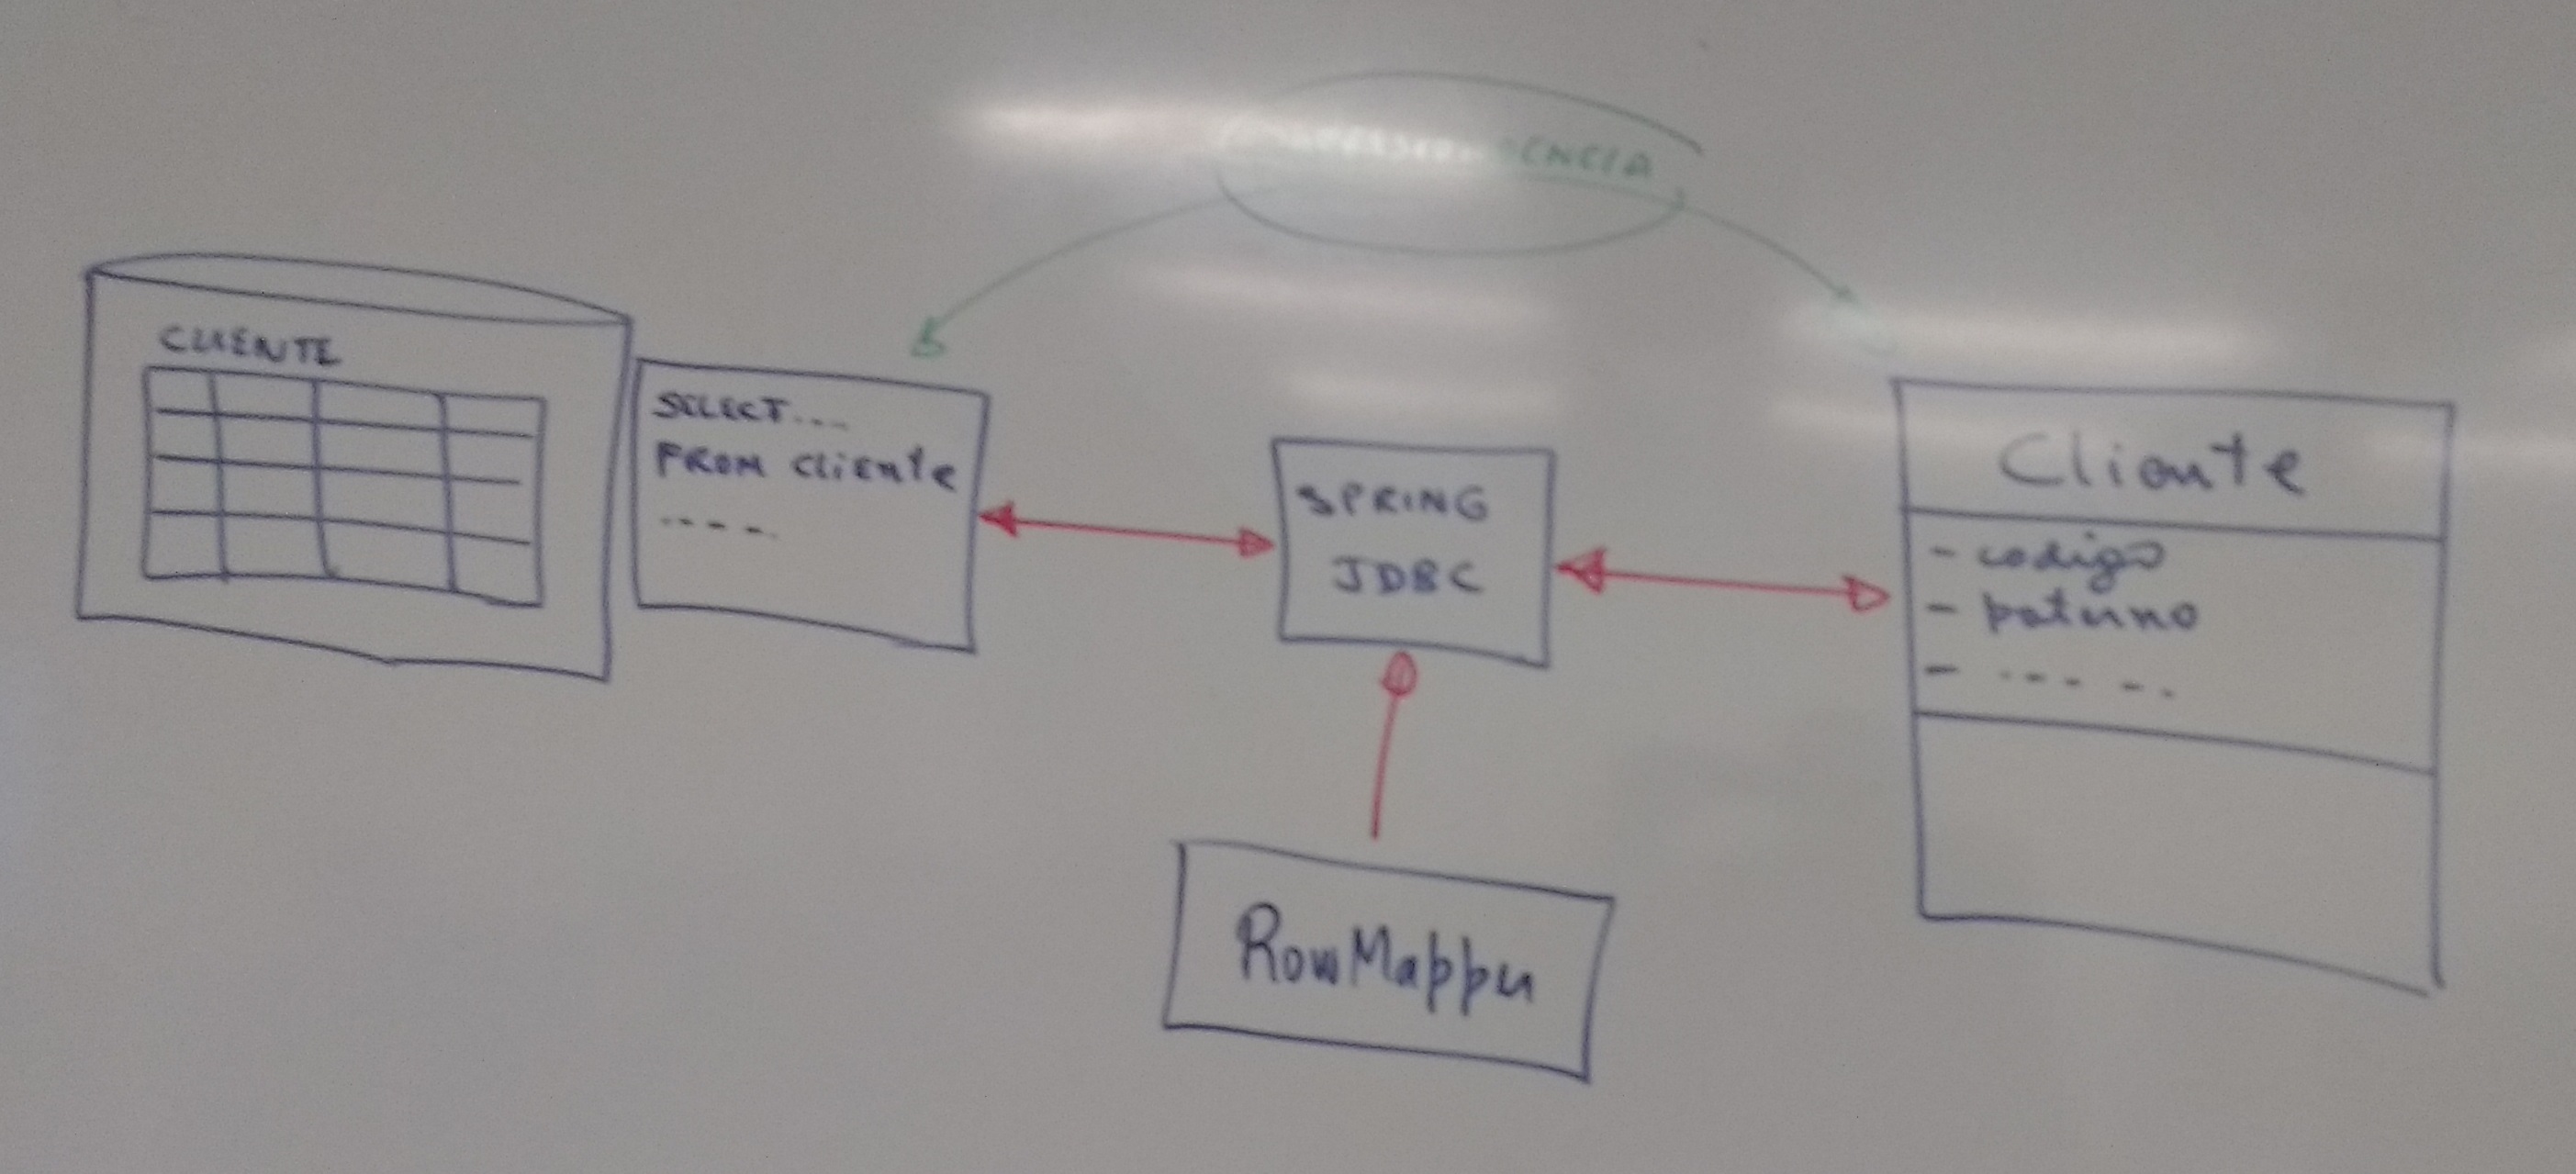 CLIENTE
SELECT....
FROM cliente
-----
SPRING
JDBC
Cliente
- codigo
- paterno
- -----
RowMapper